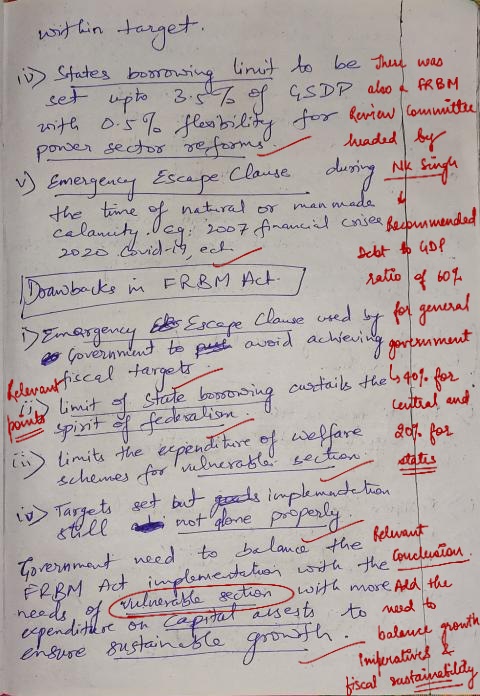 within target.
iv) States borrowing limit to be
set upto 3.5% of GSDP
with 0.5% flexibility for
power sector reforms.
v) Emergency Escape Clause during
the time of natural or man made
calamity. eg: 2007 financial crises
2020 covid-19, ect.
Drawbacks in FRBM Act.
i) Emergency Escape Clause used by
Government to avoid achieving
fiscal targets.
ii) limit of state borrowing curtails the
spirit of federalism.
iii) limits the expenditure of welfare
schemes for vulnerable section.
iv) Targets set but implementation
still not done properly.
Government need to balance the
FRBM Act implementation with the
needs of vulnerable section with more
expenditure on capital assests to
ensure sustainable growth.
There was
also a FRBM
Review Committee
headed by
NK Singh
↓
Recommended
Debt to GDP
ratio of 60%
for general
government
↳ 40% for
central and
20% for
states
Relevant
points
Relevant
Conclusion.
Add the
need to
balance growth
imperatives &
fiscal sustainability